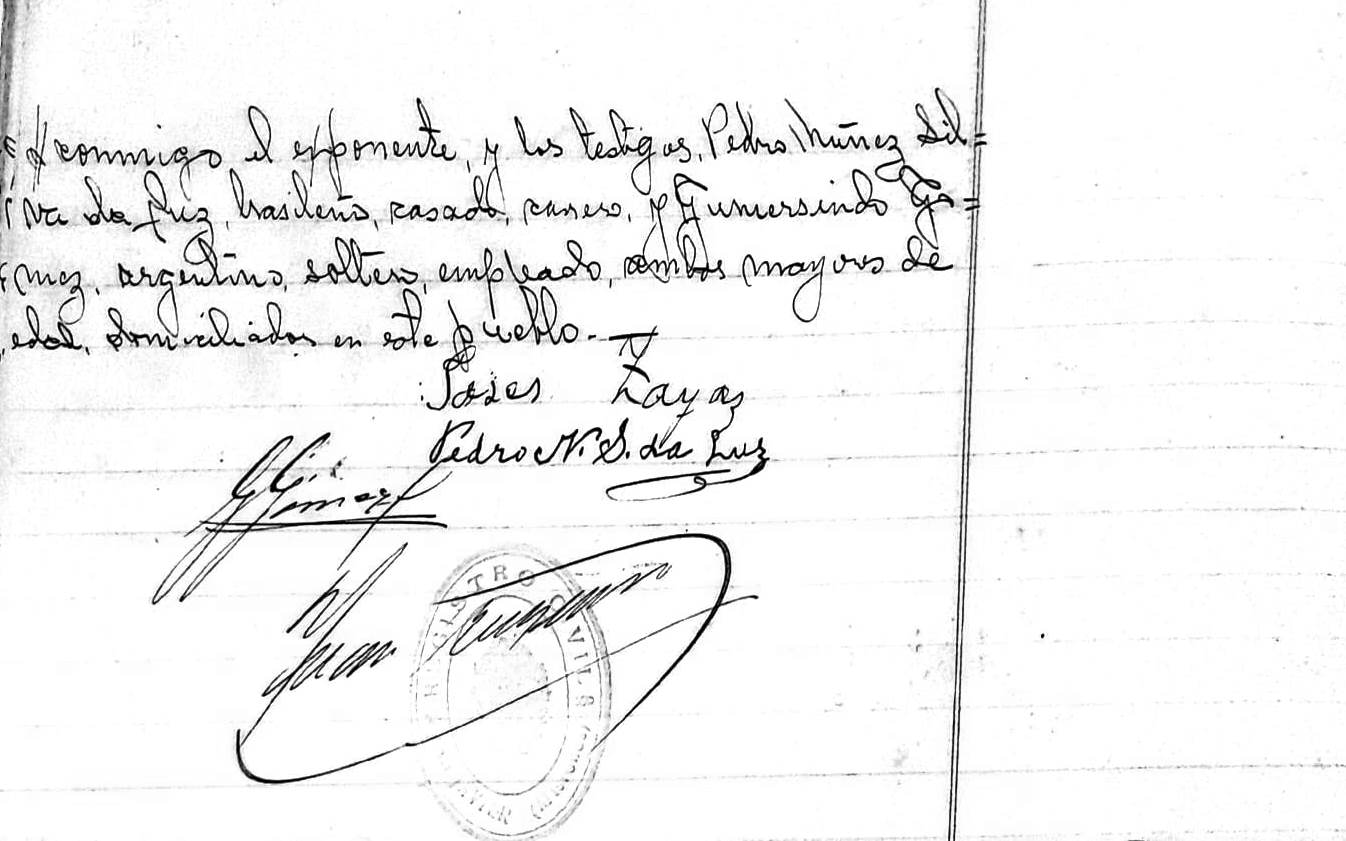 conmigo el exponente, y los testigos, Pedro Núñez Sil=
va da Luz, brasileño, casado, casero, y Gumersindo Gó=
mez, argentino, soltero, empleado, ambos mayores de
edad, domiciliados en este pueblo.-
Zayas
Pedro N. S. da Luz
G. Gómez
Juan
REGISTRO CIVIL
JAVIER (MISIONES)